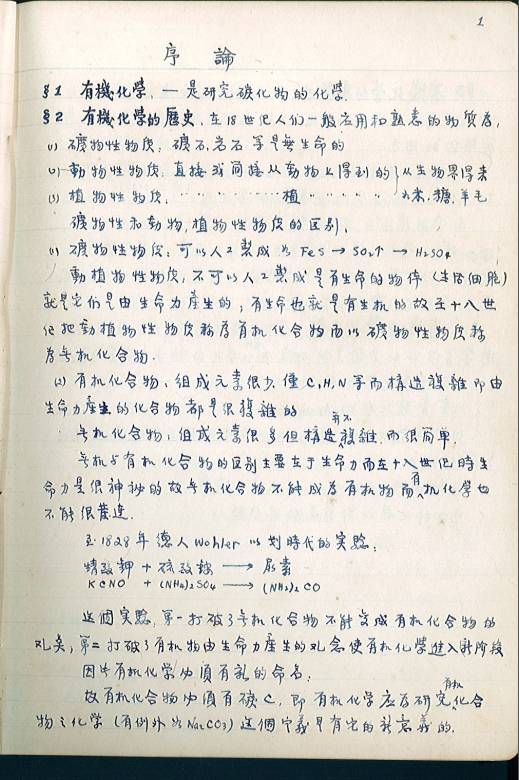 1
序論
§1 有機化學, — 是研究碳化物的化學.
§2 有機化學的歷史, 在18世纪人们一般应用和熟悉的物质為,
(1) 礦物性物质: 礦石,岩石等是無生命的
(2) 動物性物质: 直接或间接从動物上得到的 }从生物界得来
(3) 植物性物质. 〃 〃 植 〃 〃 木.糖.羊毛
礦物性和动物,植物性物质的区别.
(1) 礦物性物质: 可以人工製成如 FeS → SO₂↑ → H₂SO₄
動植物性物质: 不可以人工製成是有生命的物体 (生活细胞)
就是它们是由生命力產生的, 有生命也就是有生机的故至十八世
纪把動植物性物质稱為有机化合物而以礦物性物质称
為无机化合物.
(2) 有机化合物: 组成元素很少, 僅 C,H,N 等而構造複雜即由
生命力產生的化合物都是很複雜的
无机化合物: 组成元素很多但構造并不複雜而很简单.
无机与有机化合物的区别主要在于生命力而在十八世纪時生
命力是很神秘的故无机化合物不能成為有机物而有机化學也
不能很發達.
至1828年德人 Wohler 以划時代的实验:
KCNO + (NH₄)₂SO₄ ⟶ (NH₂)₂CO
硫酸銨 ⟶ 尿素
这個实驗, 第一打破了无机化合物不能变成有机化合物的
观点, 第二打破了有机物由生命力產生的观念使有机化學進入新阶段
因此有机化学必須有新的命名:
故有机化合物必須有碳C, 即有机化學应為研究有机化合
物之化學 (有例外如 Na₂CO₃) 这個定義是有它的新意義的.